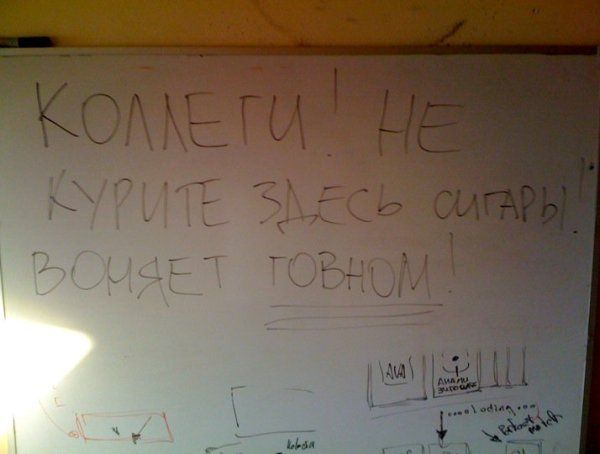 КОЛЛЕГИ! НЕ
КУРИТЕ ЗДЕСЬ СИГАРЫ!
ВОНЯЕТ ГОВНОМ!
....loding...